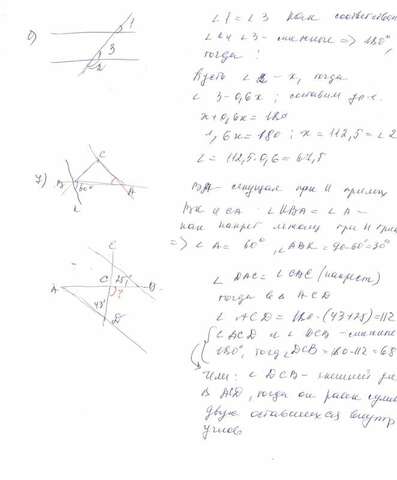 ∠1 = ∠3 как соответствен
∠2 и ∠3 - смежные => 180°,
тогда:
Пусть ∠2 - x, тогда
∠3 - 0,6x; составим ур-е.
x + 0,6x = 180
1,6x = 180; x = 112,5 = ∠2
∠ = 112,5 · 0,6 = 67,5
1
3
2
BA - секущая при II прямых
BK и CA ∠KBA = ∠A -
как накрест лежащ при II прям
=> ∠A = 60°, ∠ABK = 90-60=30°
C
B
60°
A
K
∠DAC = ∠BAC (накрест)
тогда в △ ACD
∠ACD = 180 - (43+25) = 112
∠ACD и ∠DCB - смежные
180°, тогд ∠DCB = 180-112 = 68
Или: ∠DCB - внешний
△ ACD, тогда он равен сумме
двух оставшихся внутр
углов
C
25°
A
B
43°
D